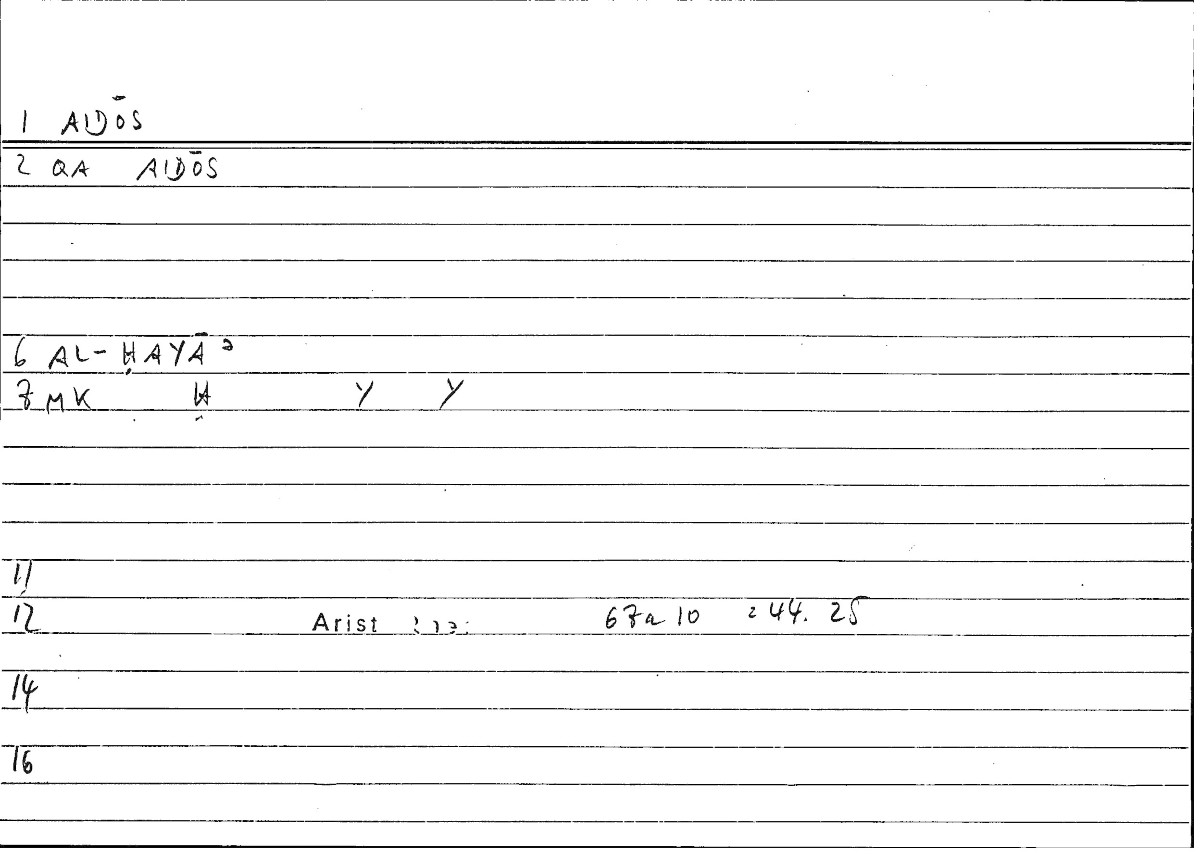 1 AIDŌS
2 QA AIDŌS
6 AL-ḤAYĀʾ
7 MK Ḥ Y Y
11
12 Arist 67a10 244.25
14
16